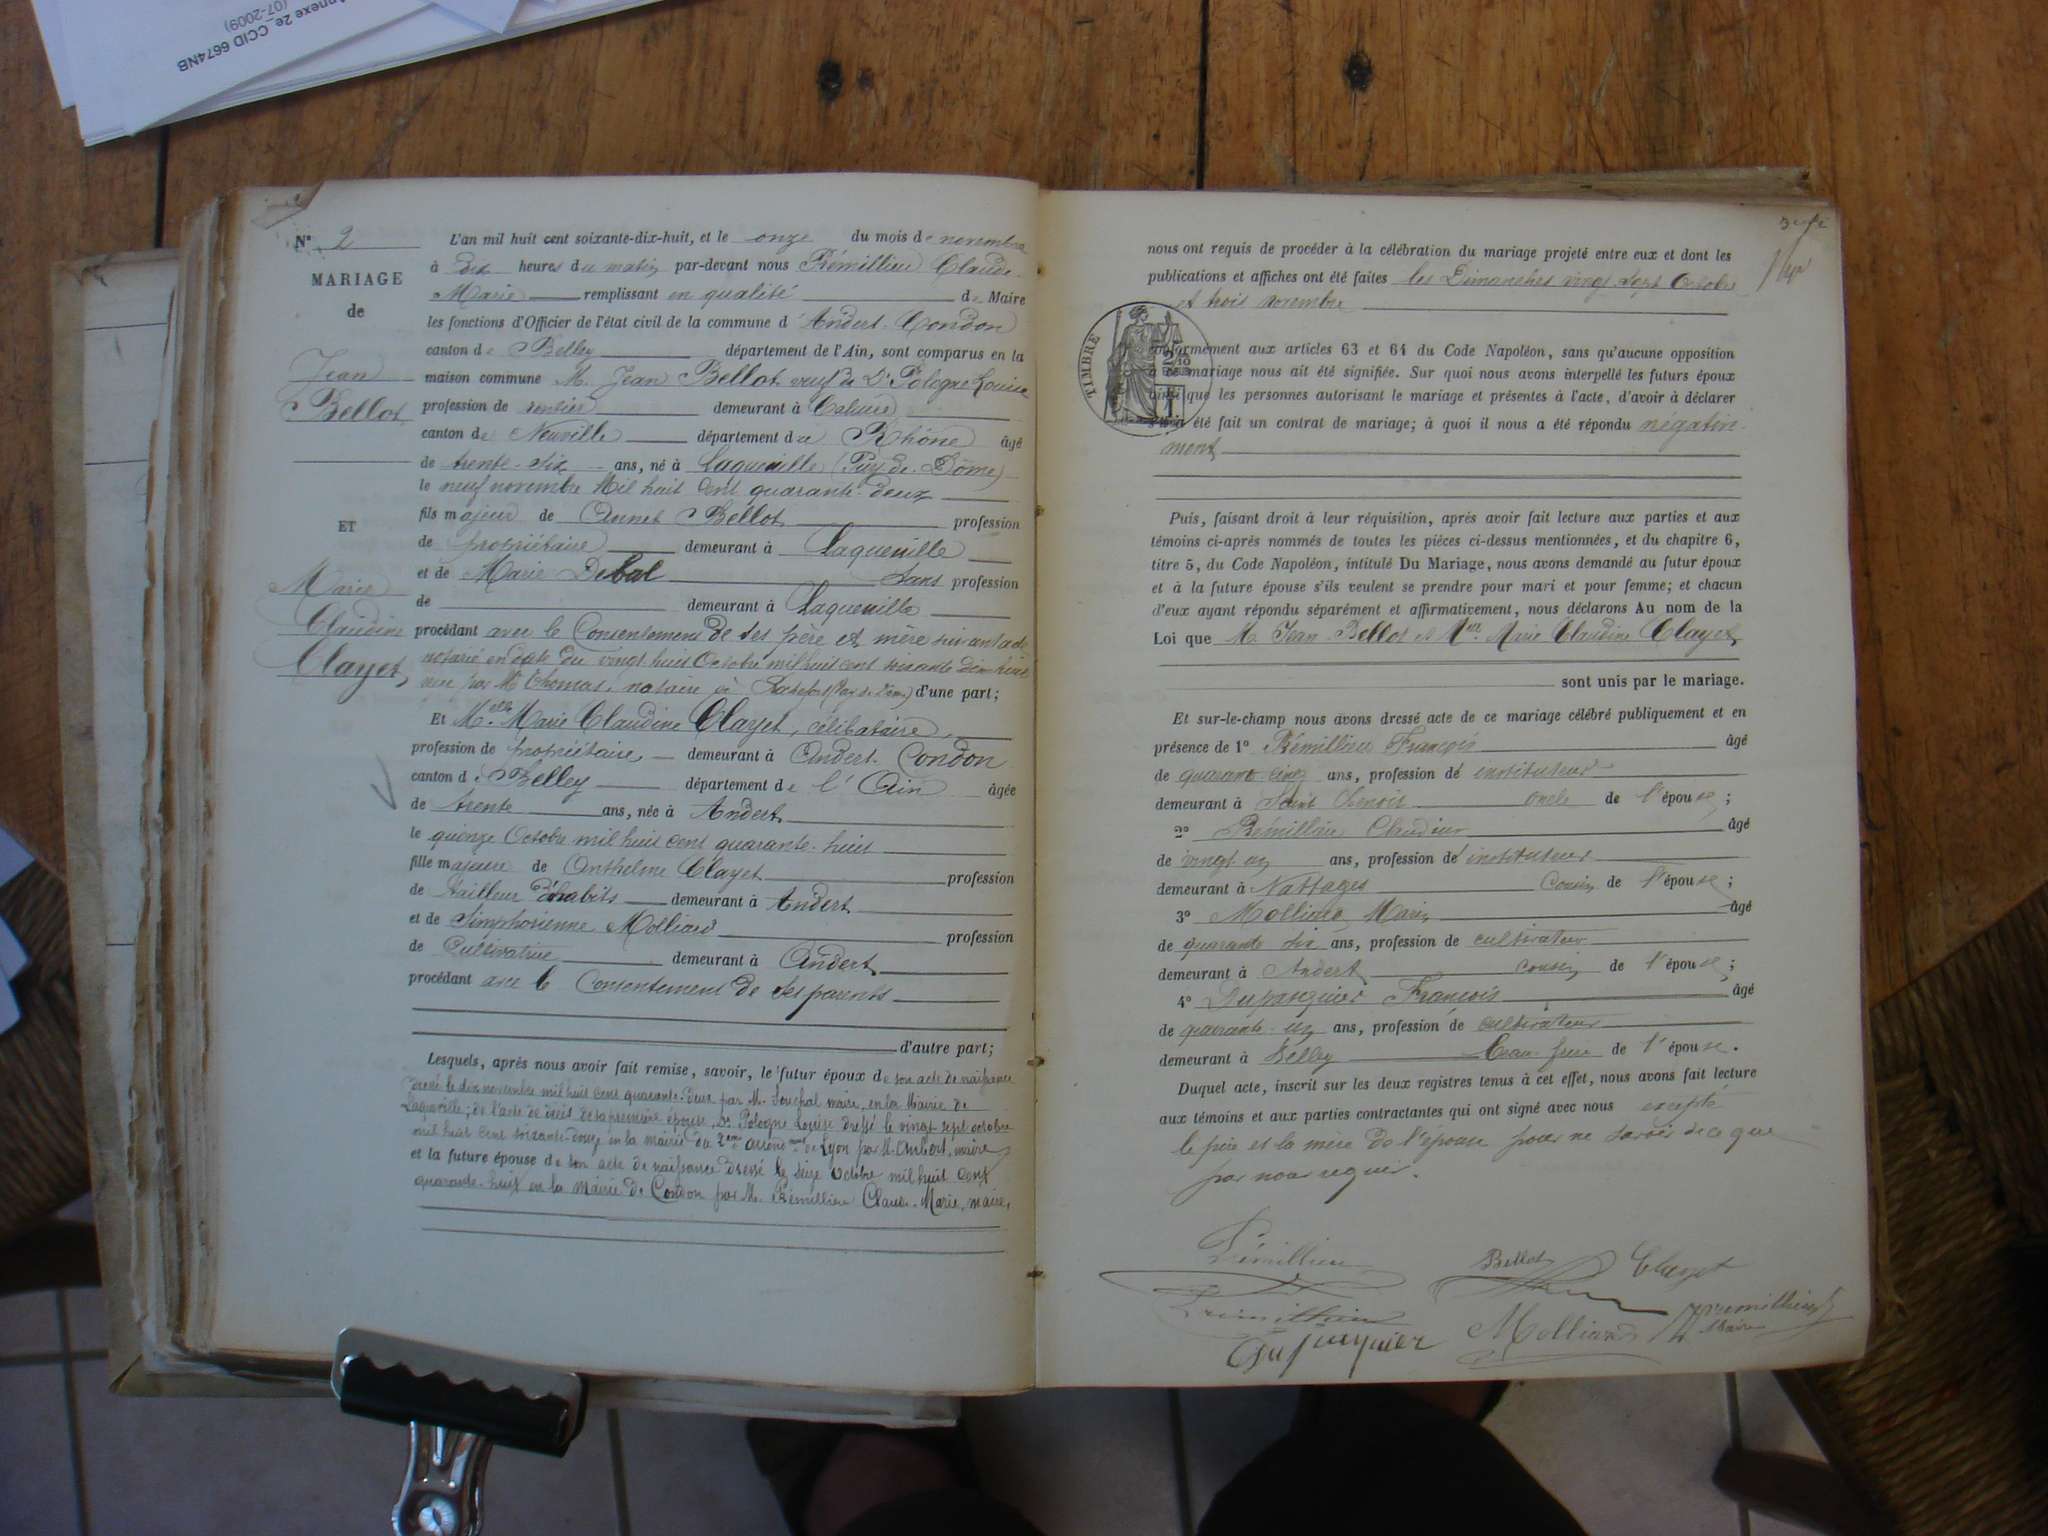 Annexe 2e_CCID 6674NB
(07-2009)
N° 2
MARIAGE
de
Jean
Bellot
ET
Marie
Claudine
Clayet
L'an mil huit cent soixante-dix-huit, et le onze du mois de novembre
à dix heures du matin par-devant nous Rémillieu Claude
Marie remplissant en qualité de Maire
les fonctions d'Officier de l'état civil de la commune d'Andert-Condon
canton de Belley département de l'Ain, sont comparus en la
maison commune M. Jean Bellot veuf de De Pologne Louise
profession de rentier demeurant à Caluire
canton de Neuville département du Rhône âgé
de trente-six ans, né à Laqueuille (Puy-de-Dôme)
le neuf novembre Mil huit cent quarante-deux
fils majeur de Annet Bellot profession
de propriétaire demeurant à Laqueuille
et de Marie Debal Sans profession
de demeurant à Laqueuille
procédant avec le Consentement de ses père et mère suivant acte
notarié en date du vingt-huit Octobre mil huit cent soixante dix-huit
par Me Thomas, notaire à Rochefort (Puy de Dôme) d'une part;
Et Melle Marie Claudine Clayet, célibataire,
profession de propriétaire demeurant à Andert-Condon
canton de Belley département de l'Ain âgée
de trente ans, née à Andert
le quinze Octobre mil huit cent quarante-huit
fille majeure de Anthelme Clayet profession
de tailleur d'habits demeurant à Andert
et de Simphorienne Molliard profession
de Cultivatrice demeurant à Andert
procédant avec le Consentement de ses parents
d'autre part;
Lesquels, après nous avoir fait remise, savoir, le futur époux de son acte de naissance
dressé le dix novembre mil huit cent quarante-deux par M. Souchal maire, en la Mairie de
Laqueuille; de l'acte de décès de sa première épouse, De Pologne Louise dressé le vingt sept octobre
mil huit cent soixante-douze en la mairie du 2eme arrondmt de Lyon par M. maire,
et la future épouse de son acte de naissance dressé le seize Octobre mil huit cent
quarante-huit en la Mairie de Condon par M. Rémillieu Claude-Marie, maire,
nous ont requis de procéder à la célébration du mariage projeté entre eux et dont les
publications et affiches ont été faites les Dimanches vingt sept Octobre
et trois novembre
TIMBRE
conformément aux articles 63 et 64 du Code Napoléon, sans qu'aucune opposition
à ce mariage nous ait été signifiée. Sur quoi nous avons interpellé les futurs époux
ainsi que les personnes autorisant le mariage et présentes à l'acte, d'avoir à déclarer
s'il a été fait un contrat de mariage; à quoi il nous a été répondu négative-
ment
Puis, faisant droit à leur réquisition, après avoir fait lecture aux parties et aux
témoins ci-après nommés de toutes les pièces ci-dessus mentionnées, et du chapitre 6,
titre 5, du Code Napoléon, intitulé Du Mariage, nous avons demandé au futur époux
et à la future épouse s'ils veulent se prendre pour mari et pour femme; et chacun
d'eux ayant répondu séparément et affirmativement, nous déclarons Au nom de la
Loi que M. Jean Bellot et Melle Marie Claudine Clayet
sont unis par le mariage.
Et sur-le-champ nous avons dressé acte de ce mariage célébré publiquement et en
présence de 1° Rémillieu François âgé
de quarante cinq ans, profession de instituteur
demeurant à Saint Benoit oncle de l'épouse;
2° Rémillieu Claudius âgé
de vingt un ans, profession de instituteur
demeurant à Nattages Cousin de l'épouse;
3° Molliard Marin âgé
de quarante six ans, profession de cultivateur
demeurant à Andert cousin de l'épouse;
4° Dupasquier François âgé
de quarante-un ans, profession de cultivateur
demeurant à Belley beau-frère de l'épouse.
Duquel acte, inscrit sur les deux registres tenus à cet effet, nous avons fait lecture
aux témoins et aux parties contractantes qui ont signé avec nous excepté
le père et la mère de l'épouse pour ne savoir de ce que
par nous requis.
Rémillieu Bellot Clayet
Remillieu Remillieux
Maire
Dupasquier Molliard